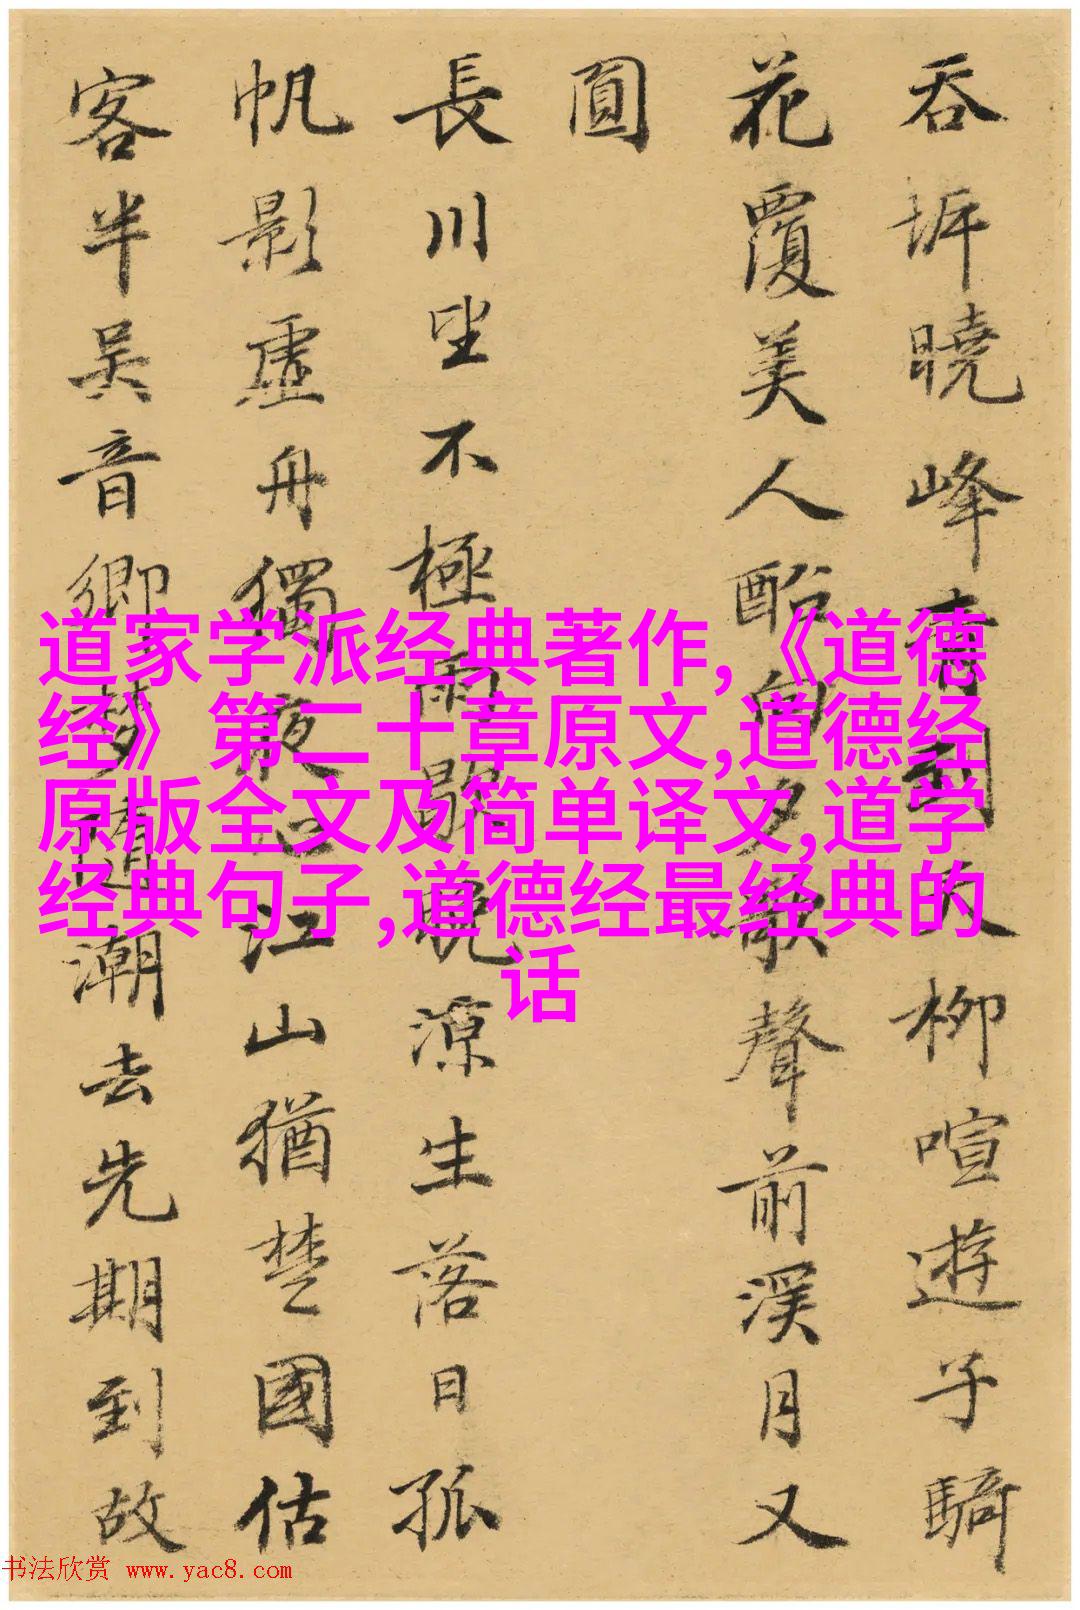 吞坼曉峰青柳喧遊子騎
花覆美人夕歌聲前溪月又
圓
長川坐不極雨歇晚涼生落日孤
帆影虛舟獨夜心江山猶楚國估
客半吳音鄉夢隨潮去先期到故
道家学派经典著作,《道德
经》第二十章原文,道德经
原版全文及简单译文,道学
经典句子,道德经最经典的
话
书法欣赏 www.yac8.com